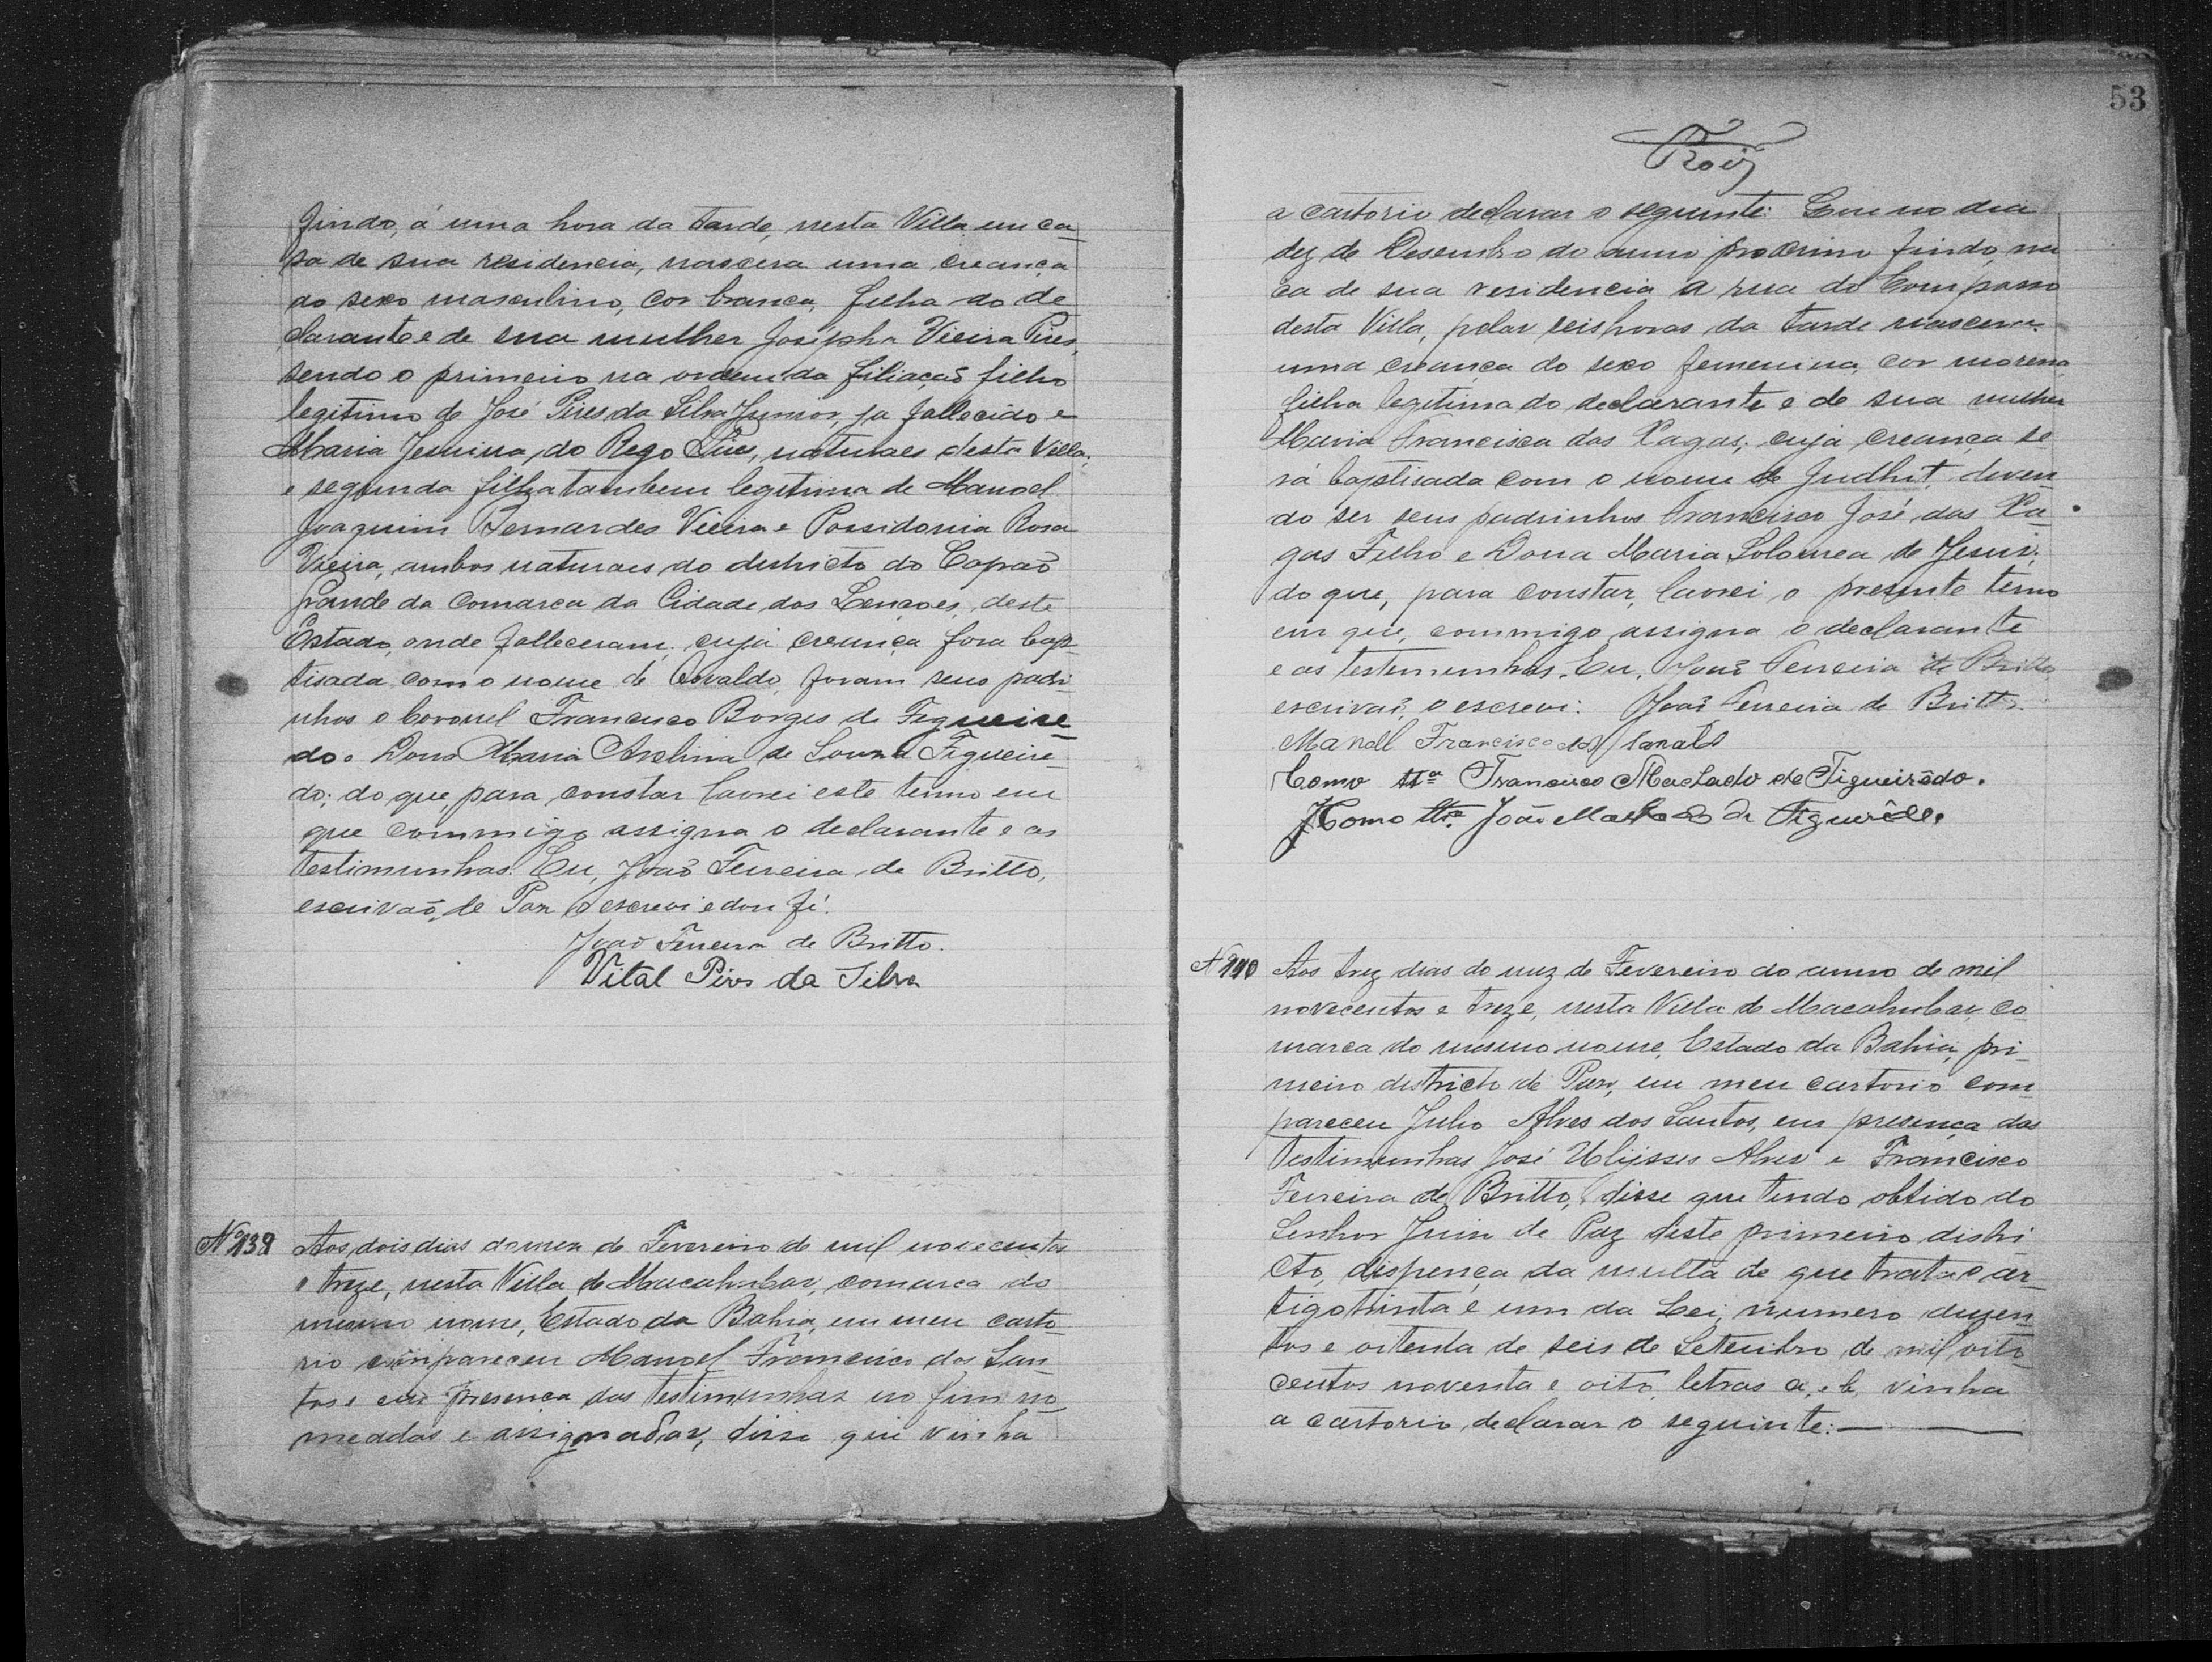 findo, á uma hora da tarde, nesta Villa em ca-
sa de sua residencia, nascera uma creança
do sexo masculino, cor branca, filha do de
clarante e de sua mulher Josépha Vieira Pires,
sendo o primeiro na ordem da filiação filho
legitimo de José Pires da Silva Junior, ja fallecido e
Maria Jesuina do Rego Pires, naturaes desta Villa,
e segunda filha tambem legitima de Manoel
Joaquim Bernardes Vieira e Possidonia Rosa
Vieira, ambos naturaes do districto do Capão
grande da Comarca da Cidade dos Lençoes, deste
Estado, onde falleceram, cuja creança fora bap-
tisada com o nome de Osvaldo, foram seus padri-
nhos o Coronel Francisco Borges de Figueire-
do e Dona Maria Avelina de Souza Figueire-
do; do que para constar lavrei este termo em
que commigo assigna o declarante e as
testimunhas. Eu, João Ferreira de Britto,
escrivaõ de Paz o escrevi e dou fé.
João Ferreira de Britto.
Vital Pires da Silva
Nº 139 Aos dois dias do mez de Fevereiro de mil novecentos
e treze, nesta Villa de Macahubas, comarca do
mesmo nome, Estado da Bahia, em meu carto-
rio compareceu Manoel Francisco dos San
tos e em presença das testimunhas no fim no
meadas e assignadas, disse que vinha
53
Roiz
a cartorio declarar o seguinte: Que no dia
dez de Desembro do anno proximo findo, na
ca de sua residencia a rua do
desta Villa, pelas seis horas da tarde nascera
uma creança do sexo femenina, cor morena
filha legitima do declarante e de sua mulher
Maria Francisca das Xagas, cuja creança se
rá baptisada com o nome de Judhit, deven
do ser seus padrinhos Francisco José das Xa-
gas Filho e Dona Maria Solomea de Jesus;
do que, para constar, lavrei o presente termo
em que, commigo assigna o declarante
e as testemunhas. Eu, João Ferreira de Britto
escrivaõ, o escrevi. João Ferreira de Britto.
Manoel Francisco dos
Como tta Francisco Machado de Figueirêdo.
Como tta João Machado de Figueirêdo.
Nº 140 Aos trez dias do mez de Fevereiro do anno de mil
novecentos e treze, nesta Villa de Macahubas, co
marca do mesmo nome, Estado da Bahia, pri-
meiro districto de Paz, em meu cartorio com
pareceu Julio Alves dos Santos, em presença das
testimunhas José Ulysses Alves e Francisco
Ferreira de Britto, disse que tendo obtido do
Senhor Juiz de Paz deste primeiro distri
cto, dispença da multa de que trata o ar-
tigo trinta e um da Lei, numero duzen-
tos e oitenta de seis de Setembro de mil oito-
centos noventa e oito, letras a, e b, vinha
a cartorio declarar o seguinte: —